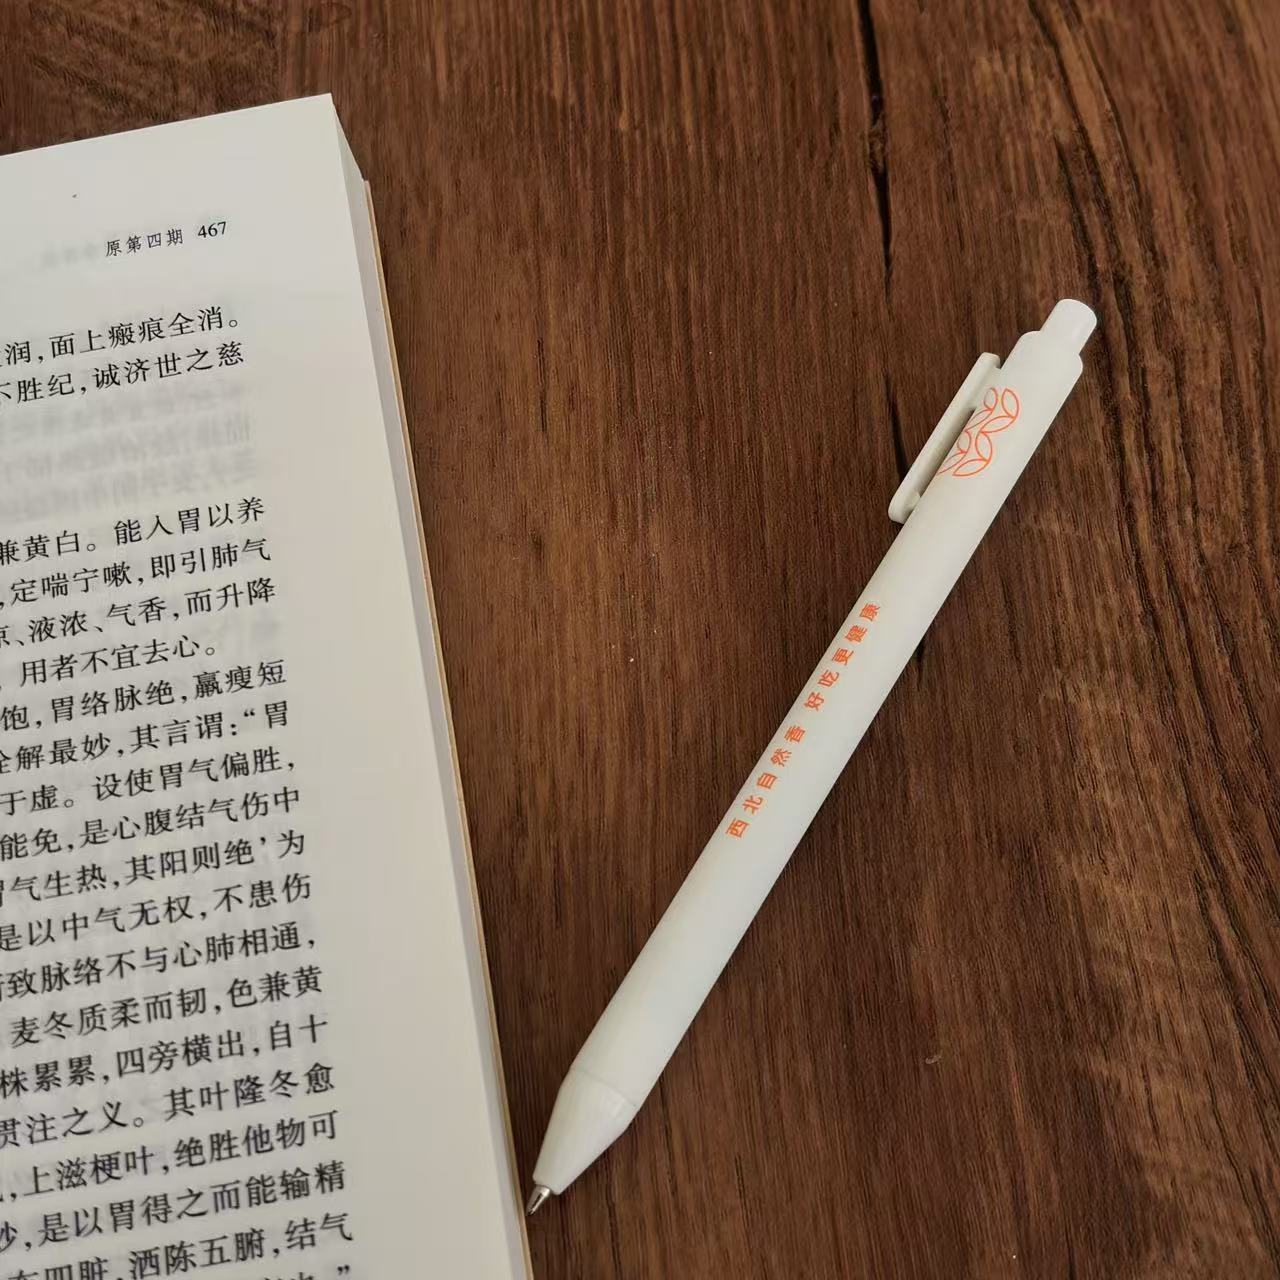 原第四期 467
润,面上瘢痕全消。
不胜纪,诚济世之慈
兼黄白。能入胃以养
,定喘宁嗽,即引肺气
凉、液浓、气香,而升降
用者不宜去心。
饱,胃络脉绝,羸瘦短
全解最妙,其言谓:“胃
于虚。设使胃气偏胜,
能免,是心腹结气伤中
胃气生热,其阳则绝’为
是以中气无权,不患伤
致脉络不与心肺相通,
麦冬质柔而韧,色兼黄
株累累,四旁横出,自十
贯注之义。其叶隆冬愈
,上滋梗叶,绝胜他物可
妙,是以胃得之而能输精
四脏,洒陈五腑,结气
”
西北自然香 好吃更健康